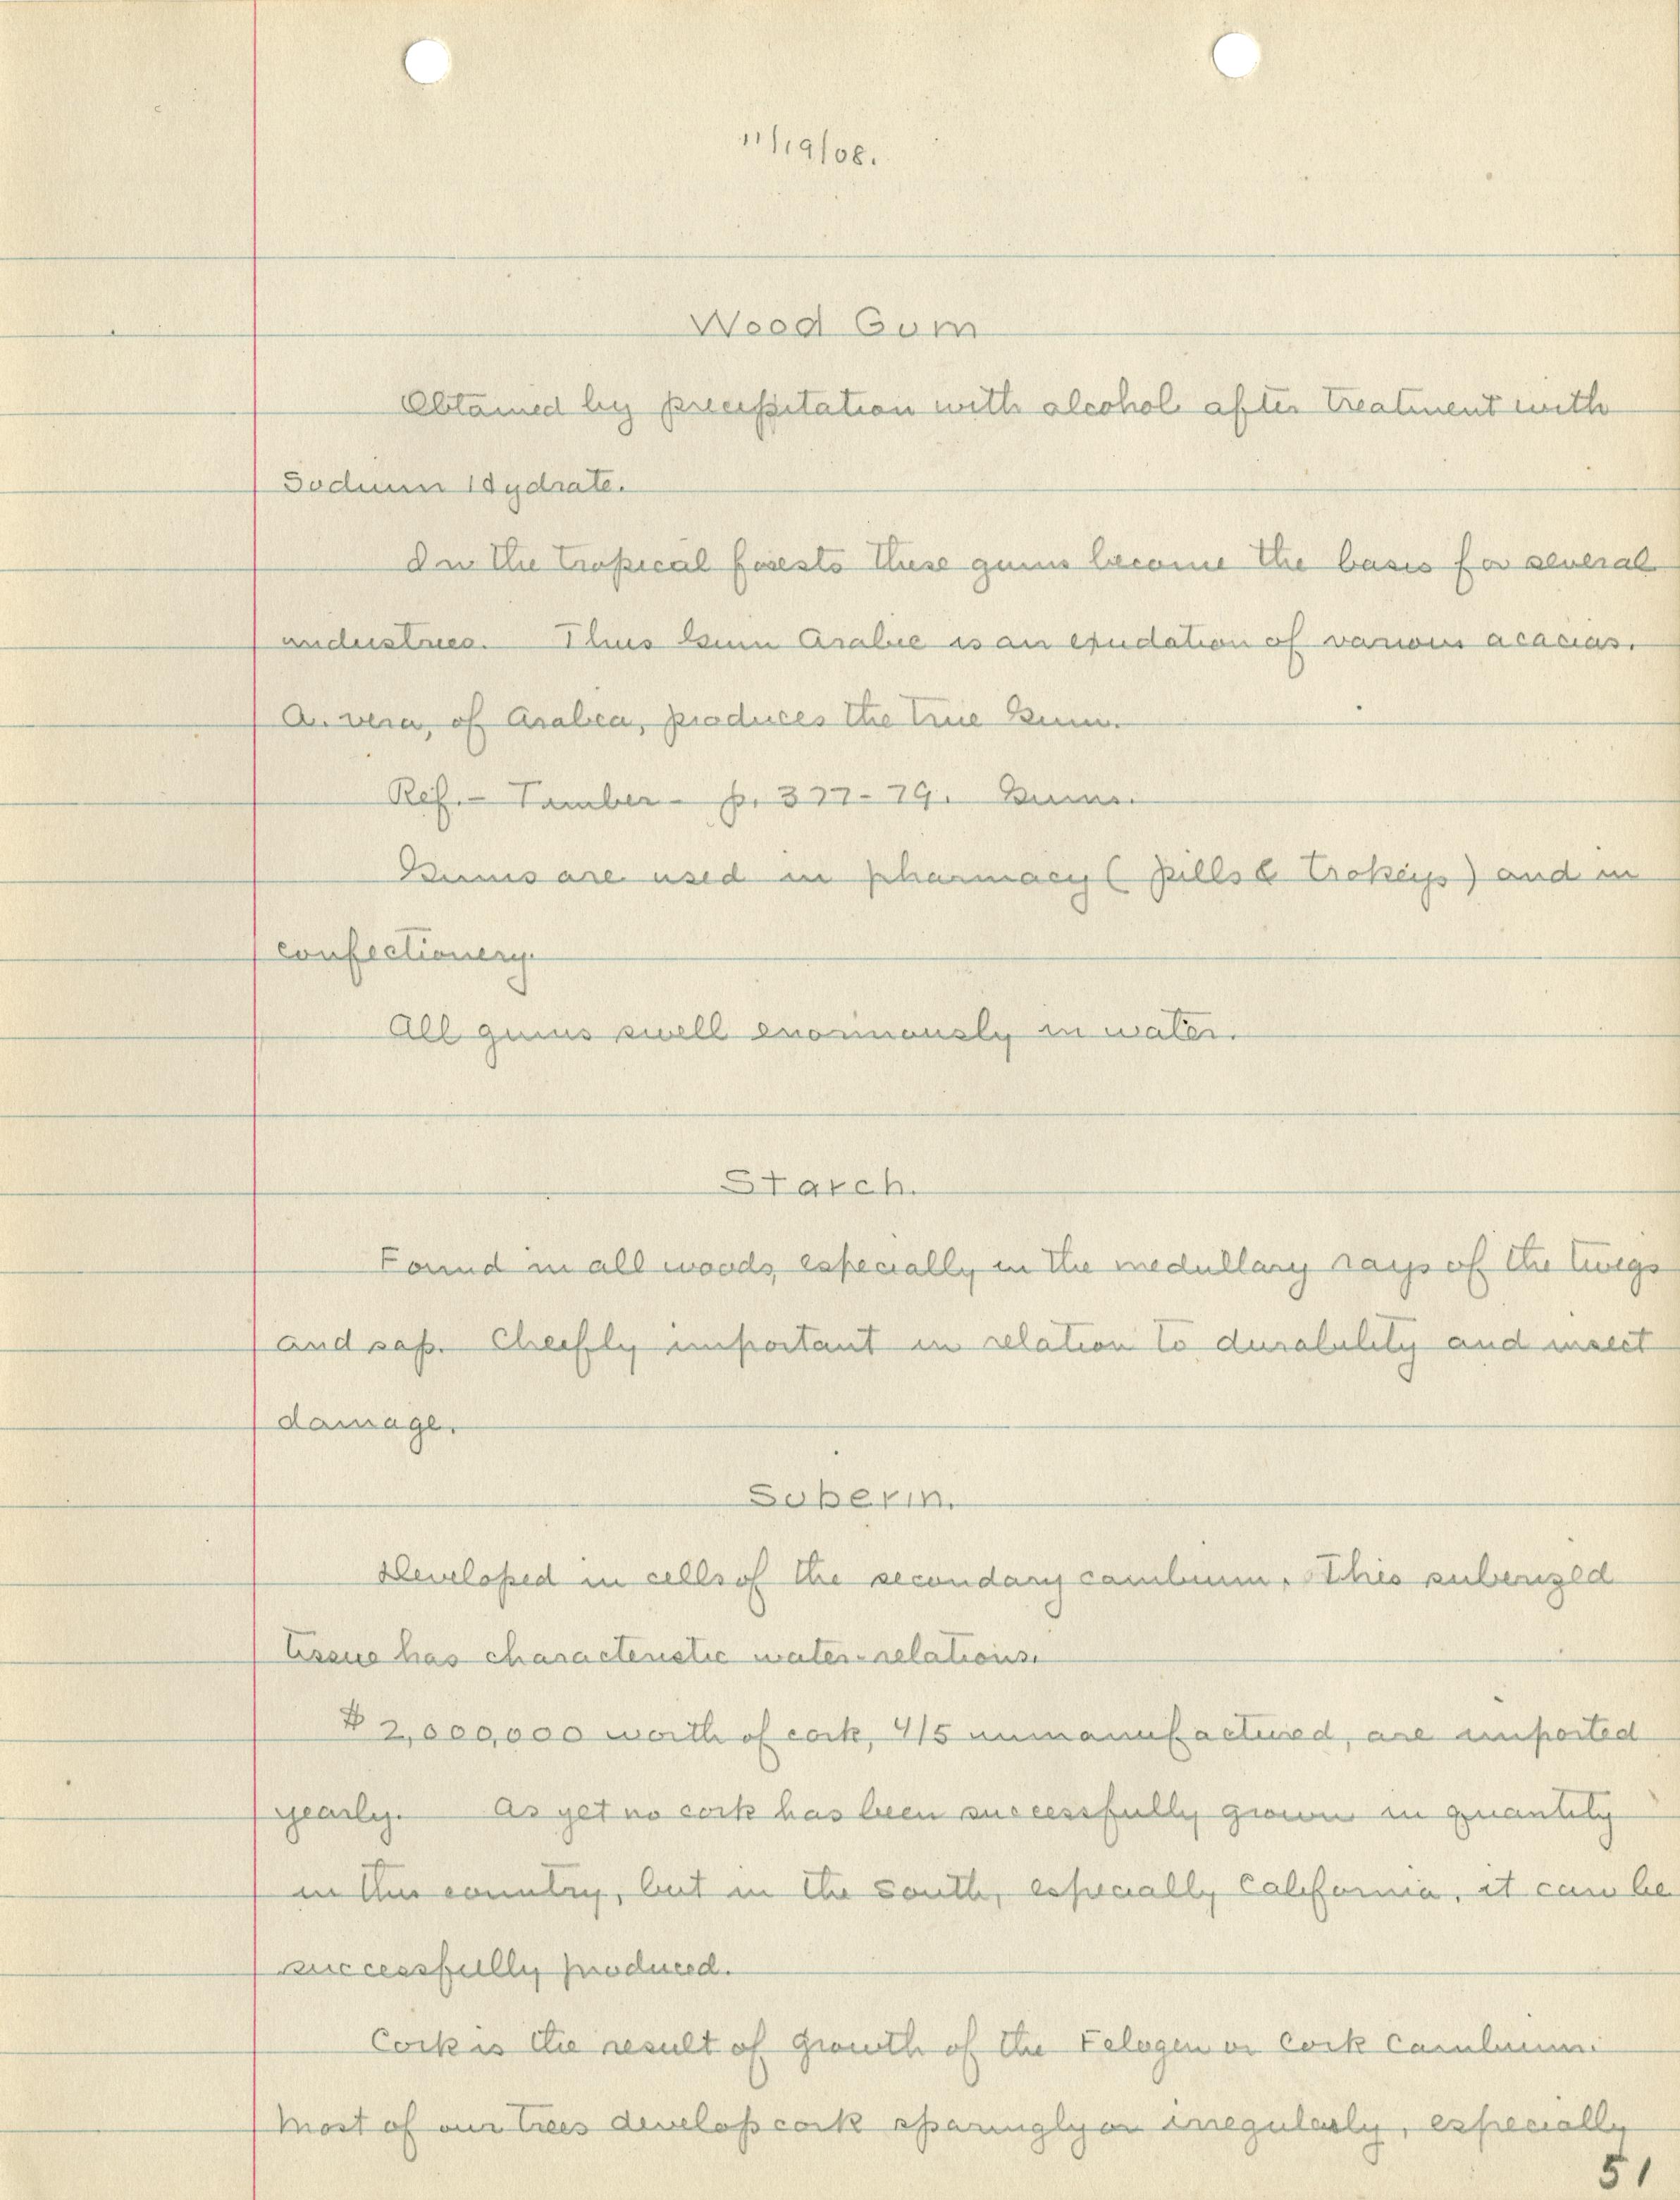 11/19/08.
Wood Gum
Obtained by precipitation with alcohol after treatment with
Sodium Hydrate.
In the tropical forests these gums become the basis for several
industries. Thus Gum Arabic is an exudation of various acacias.
A. vera, of Arabia, produces the true Gum.
Ref. - Timber - p. 377-79. Gums.
Gums are used in pharmacy ( pills & trokeys) and in
confectionery.
All gums swell enormously in water.
Starch.
Found in all woods, especially in the medullary rays of the twigs
and sap. Cheifly important in relation to durability and insect
damage.
Suberin.
Developed in cells of the secondary cambium. This suberized
tissue has characteristic water-relations.
$ 2,000,000 worth of cork, 4/5 unmanufactured, are imported
yearly. As yet no cork has been successfully grown in quantity
in this country, but in the south, especially California, it can be
successfully produced.
Cork is the result of growth of the Felogen or Cork Cambium.
Most of our trees develop cork sparingly or irregularly, especially
51